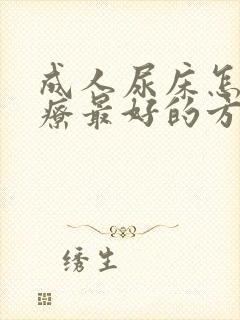 成人尿床怎
疗最好的方
绣生